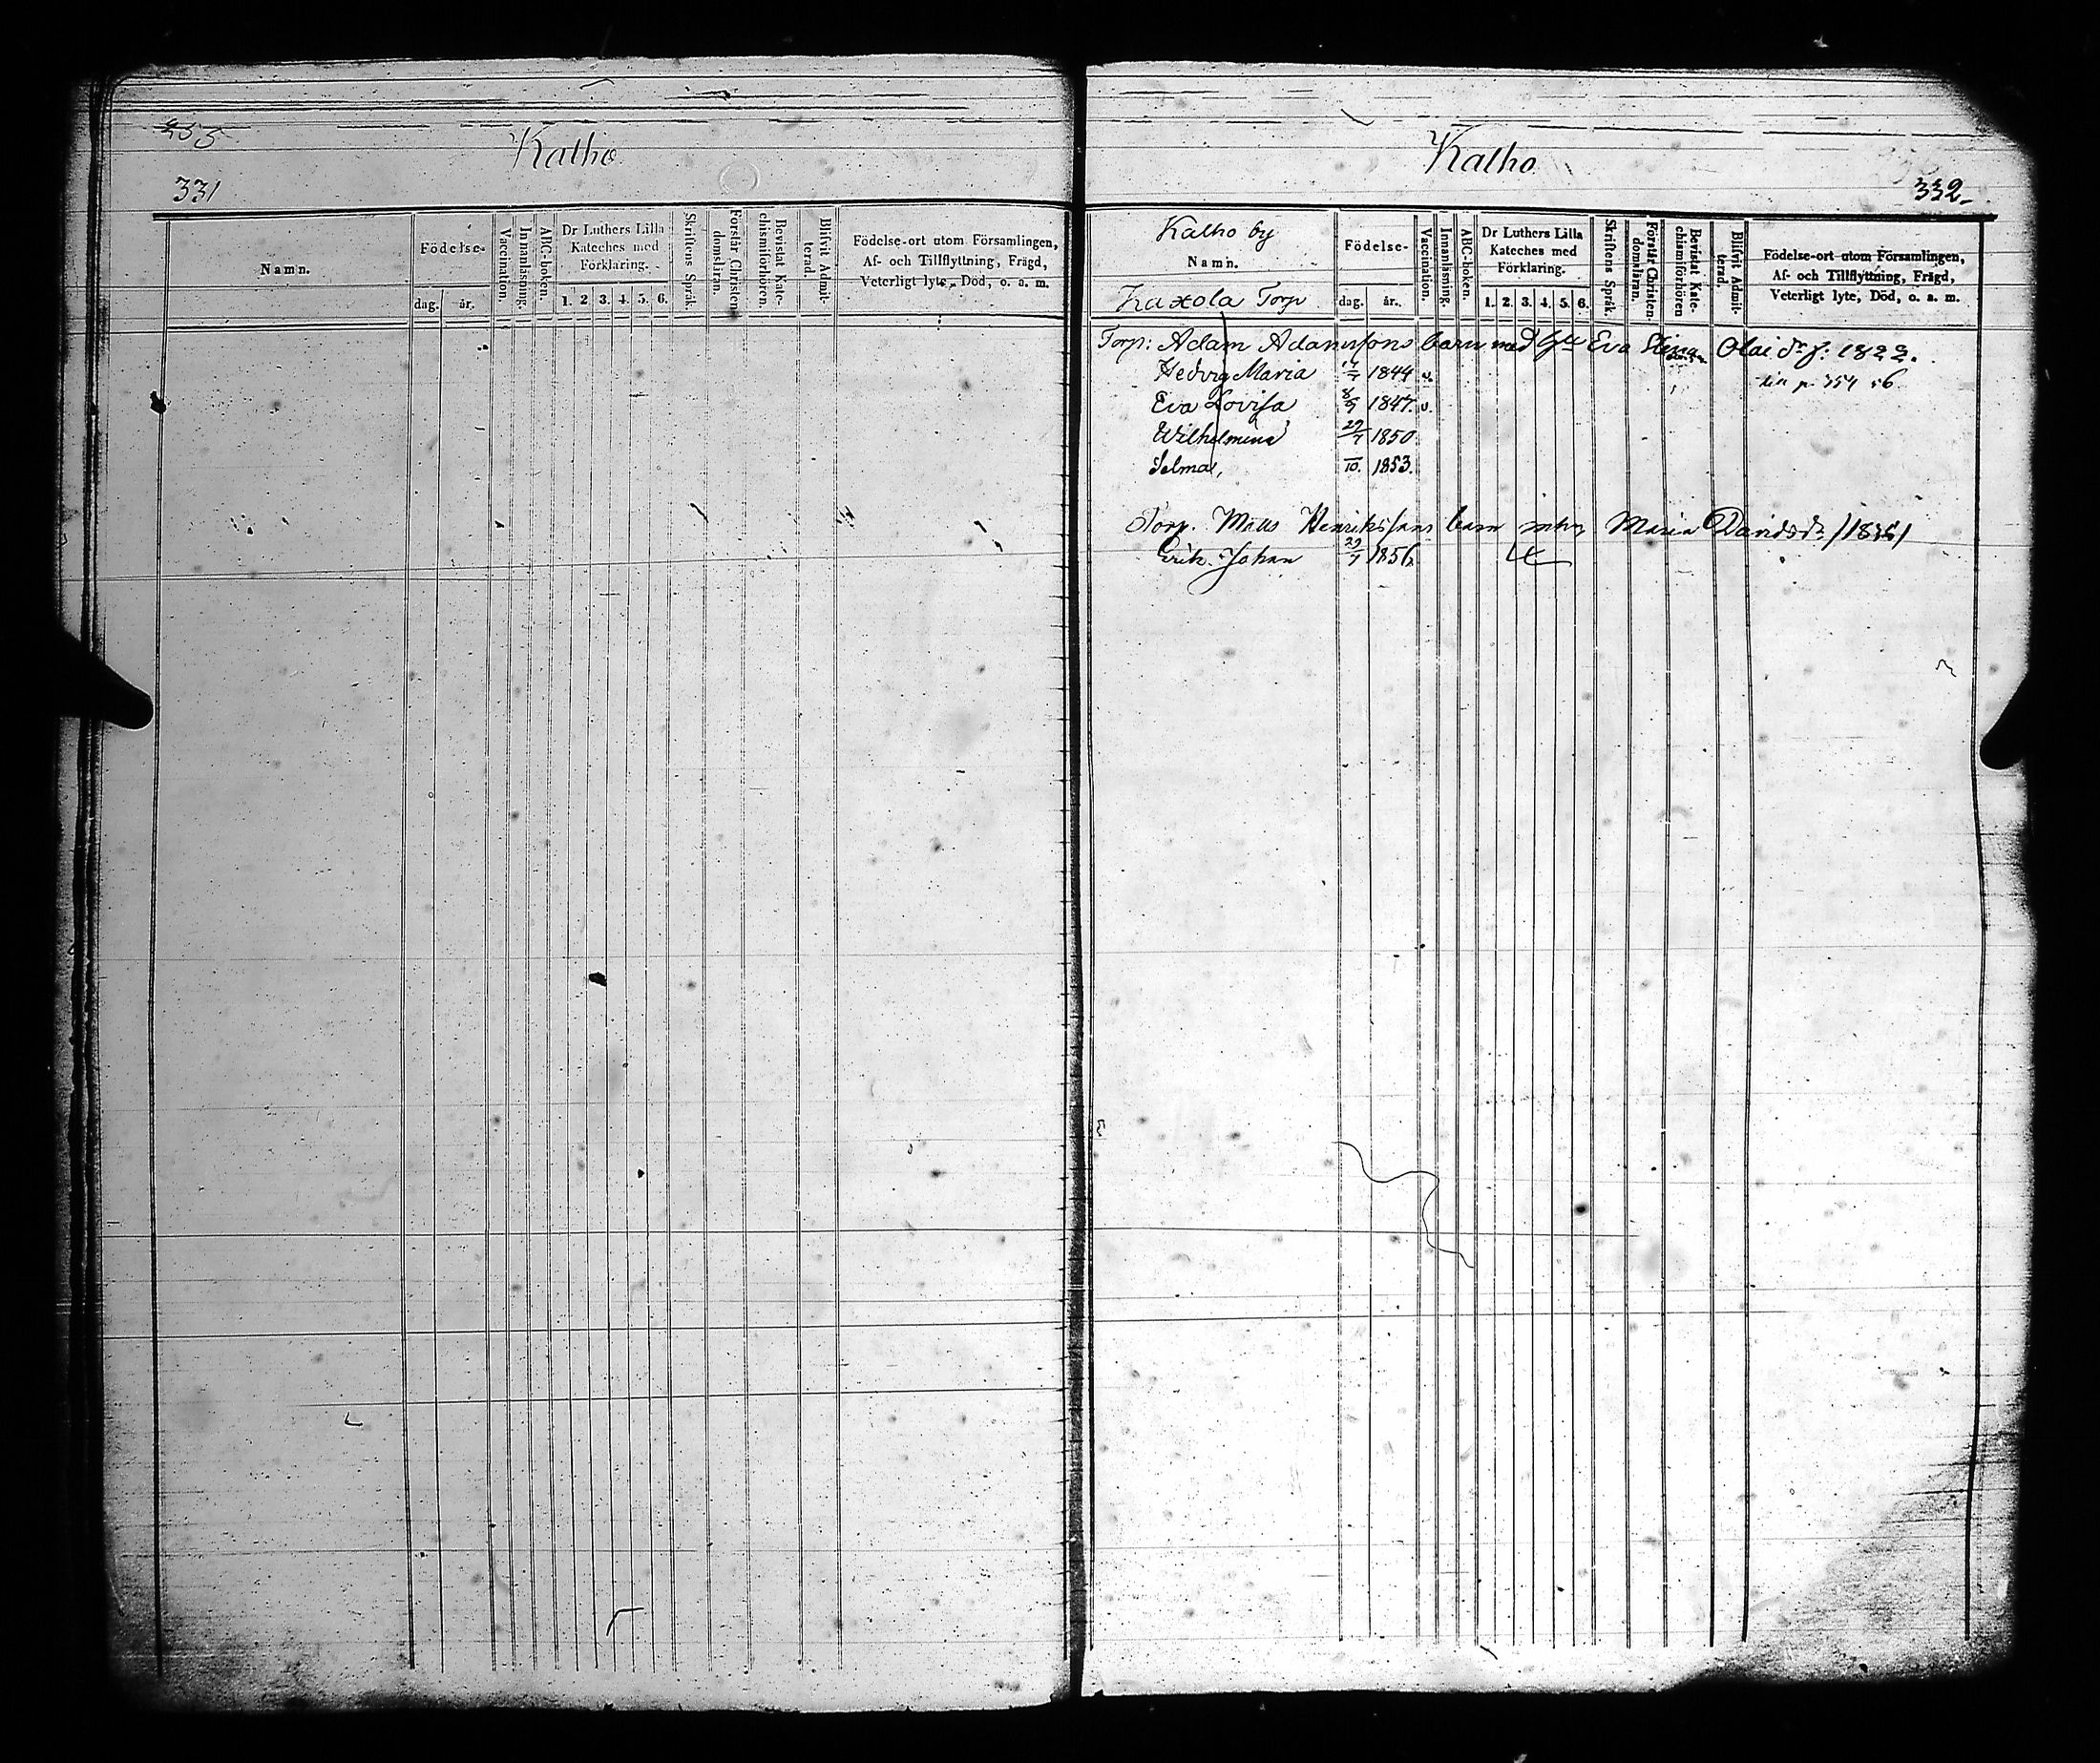 Kalho
331
Namn.
Födelse-
dag. år.
Vaccination.
Innanläsning.
ABC-boken.
Dr Luthers Lilla
Kateches med
Förklaring.
1. 2. 3. 4. 5. 6.
Skriftens Språk.
Förstår Christen-
domsläran.
Bevistat Kate-
chismiförhören.
Blifvit Admit-
terad.
Födelse-ort utom Församlingen,
Af- och Tillflyttning, Frägd,
Veterligt lyte, Död, o. a. m.
Kalho
332.
Kalho by
Namn.
Kaxola Torp
Födelse-
dag. år.
Vaccination.
Innanläsning.
ABC-boken.
Dr Luthers Lilla
Kateches med
Förklaring.
1. 2. 3. 4. 5. 6.
Skriftens Språk.
Förstår Christen-
domsläran.
Bevistat Kate-
chismiförhören
Blifvit Admit-
terad.
Födelse-ort utom Församlingen,
Af- och Tillflyttning, Frägd,
Veterligt lyte, Död, o. a. m.
Torp: Adam Adamssons barn med Eva Stina Olai dr f: 1822.
Hedvig Maria 1844 v. p. 354 56
Eva Lovisa 8/9 1847. v.
Wilhelmina 29/7 1850.
Selma, 10. 1853.
Torp. Matts Henrikssons barn Maria Davidsdr
Erik Johan 29/7 1856